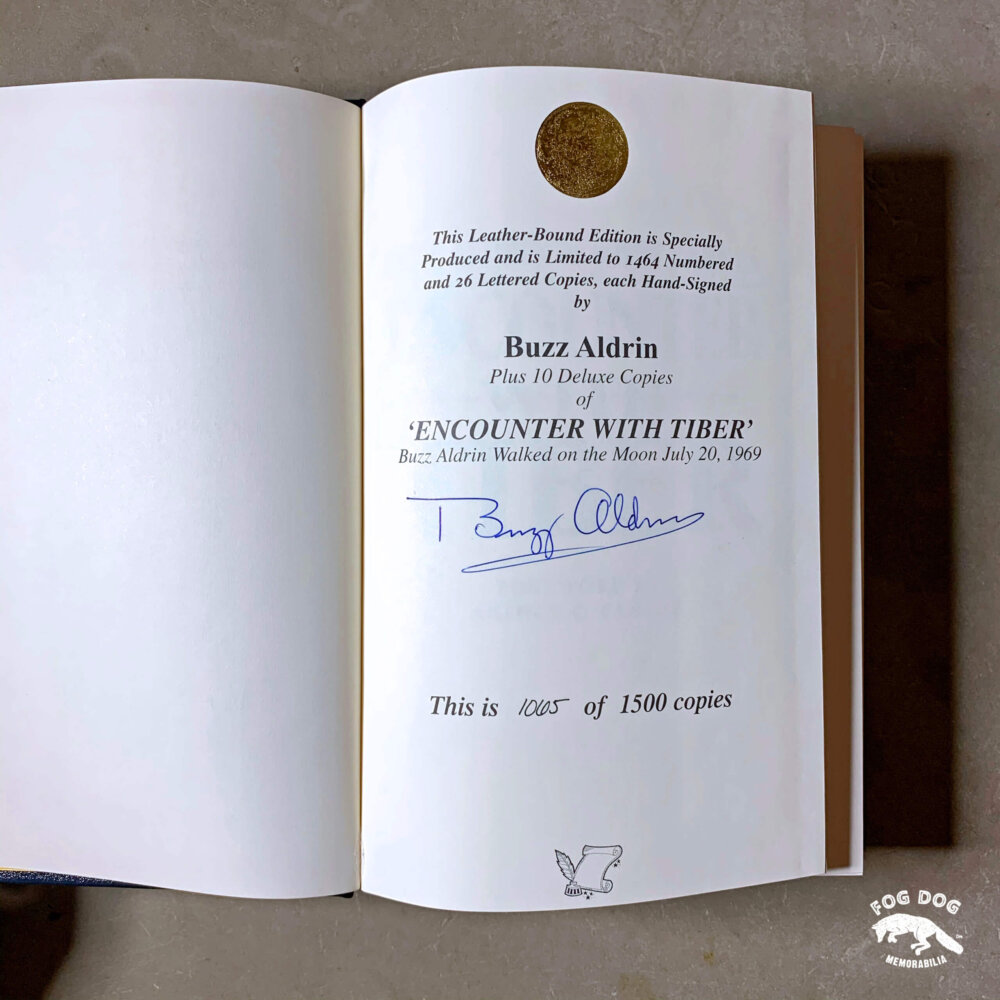 This Leather-Bound Edition is Specially
Produced and is Limited to 1464 Numbered
and 26 Lettered Copies, each Hand-Signed
by
Buzz Aldrin
Plus 10 Deluxe Copies
of
‘ENCOUNTER WITH TIBER’
Buzz Aldrin Walked on the Moon July 20, 1969
Buzz Aldrin
This is 1065 of 1500 copies
FOG DOG
MEMORABILIA